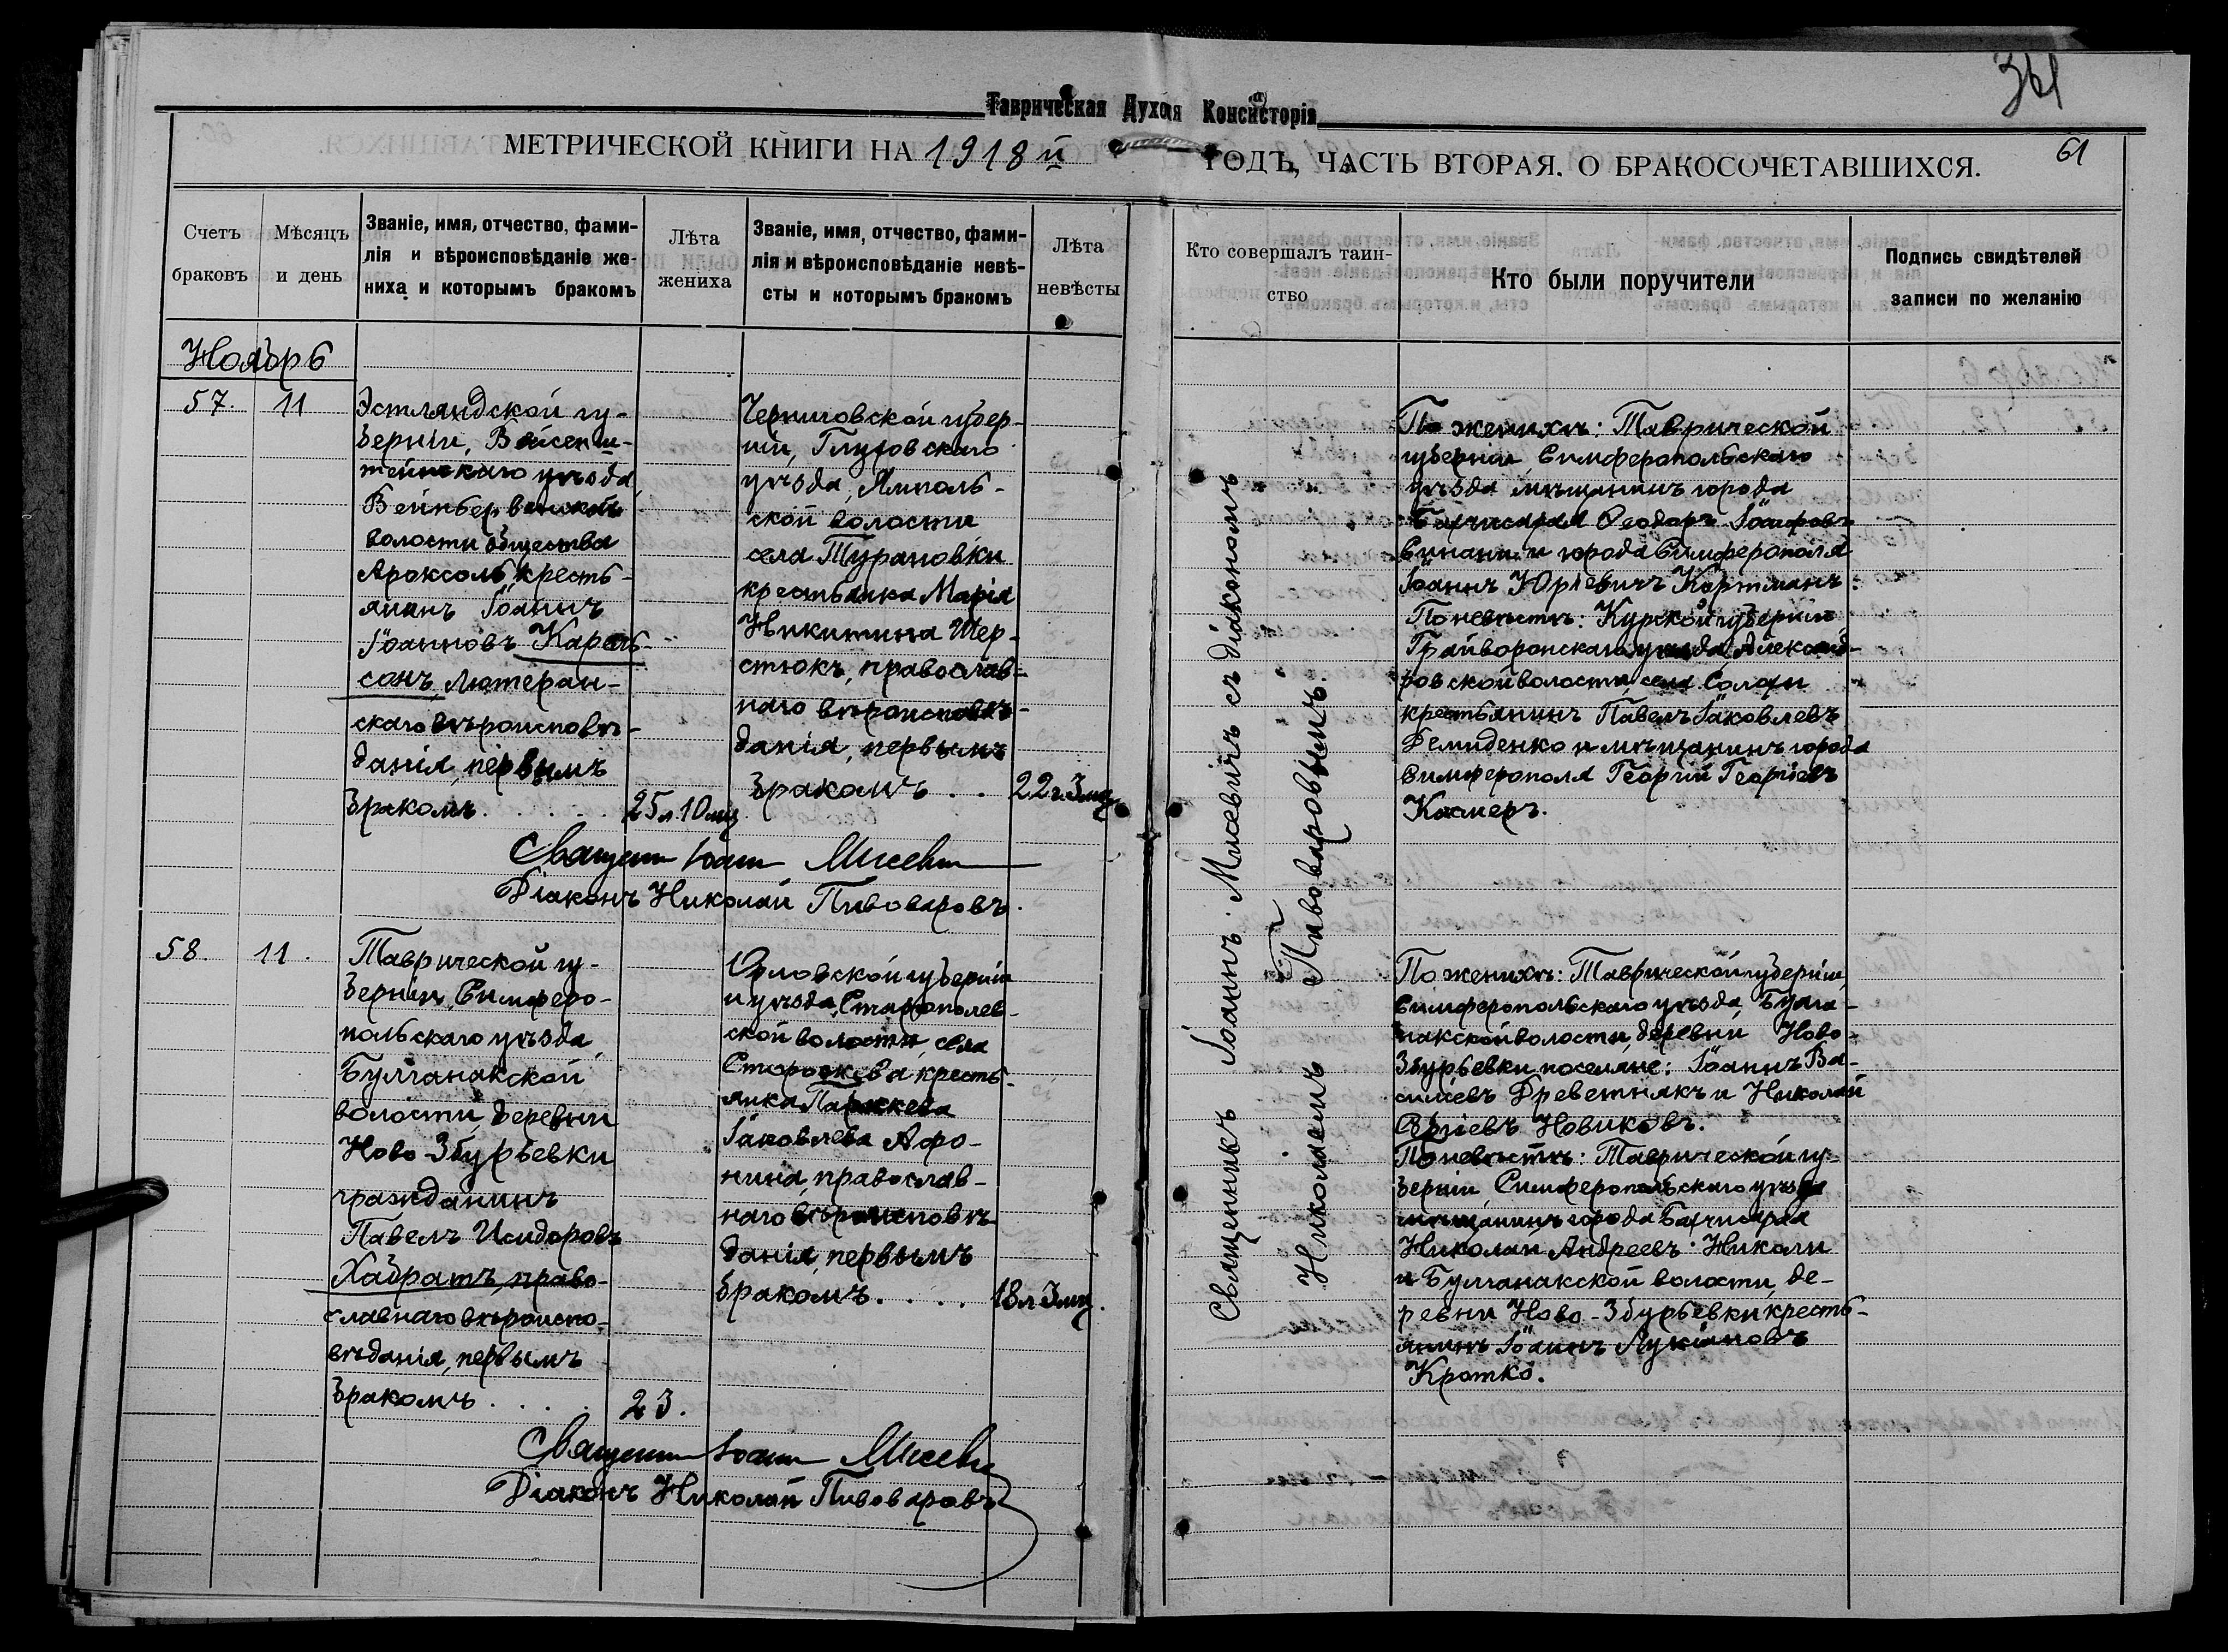 361
Таврическая Духовная Консисторія
МЕТРИЧЕСКОЙ КНИГИ НА 1918й ГОДЪ, ЧАСТЬ ВТОРАЯ. О БРАКОСОЧЕТАВШИХСЯ.
61
Счетъ
браковъ
Мѣсяцъ
и день
Званіе, имя, отчество, фами-
лія и вѣроисповѣданіе же-
ниха и которымъ бракомъ
Лѣта
жениха
Званіе, имя, отчество, фами-
лія и вѣроисповѣданіе невѣ-
сты и которымъ бракомъ
Лѣта
невѣсты
Кто совершалъ таин-
ство
Кто были поручители
Подпись свидѣтелей
записи по желанію
Ноябрь
57.
11
Эстляндской гу-
берніи, Вейсенш-
тейнскаго уѣзда,
волости общества
кресть-
янинъ Іоаннъ
Іоанновъ Карель-
сонъ, лютеран-
скаго вѣроисповѣ-
данія, первымъ
бракомъ . . . .
25 л. 10 мц.
Черниговской губер-
ніи, Глуховскаго
уѣзда, Ямполь-
ской волости
села Турановки
крестьянка Марія
Никитина Шер-
стюкъ, православ-
наго вѣроисповѣ-
данія, первымъ
бракомъ . .
22 г. 3 мц.
Священникъ Іоаннъ Мисевичъ
Діаконъ Николай Пивоваровъ.
Священникъ Іоаннъ Мисевичъ съ діакономъ
Николаемъ Пивоваровымъ.
По женихѣ: Таврической
губерніи Симферопольскаго
уѣзда мѣщанинъ города
Бахчисарая Ѳеодоръ Іосифовъ
Синани и города Симферополя
Іоаннъ Юріевичъ Кортманъ.
По невѣстѣ: Курской губерніи
Грайворонскаго уѣзда, Александ-
ровской волости, села Солохи
крестьянинъ Павелъ Іаковлевъ
Демиденко и мѣщанинъ города
Симферополя Георгій Георгіевъ
Космеръ.
58.
11.
Таврической гу-
берніи, Симферо-
польскаго уѣзда,
Булганакской
волости, деревни
Ново-Збурьевки
гражданинъ
Павелъ Исидоровъ
Хабратъ, право-
славнаго вѣроиспо-
вѣданія, первымъ
бракомъ . . . .
23.
Орловской губерніи
и уѣзда, Старополев-
ской волости, села
кресть-
янка Параскева
Іаковлева Афо-
нина, православ-
наго вѣроисповѣ-
данія, первымъ
бракомъ . . . .
18 л. 3 мц.
Священникъ Іоаннъ Мисевичъ
Діаконъ Николай Пивоваровъ
По женихѣ: Таврической губерніи,
Симферопольскаго уѣзда, Булга-
накской волости, деревни Ново-
Збурьевки поселяне: Іоаннъ Ва-
силіевъ Древетнякъ и Николай
Сергіевъ Новиковъ.
По невѣстѣ: Таврической гу-
берніи, Симферопольскаго уѣзда
мѣщанинъ города Бахчисарая
Николай Андреевъ Николи
и Булганакской волости, де-
ревни Ново-Збурьевки кресть-
янинъ Іоаннъ Лукіановъ
Кротко.